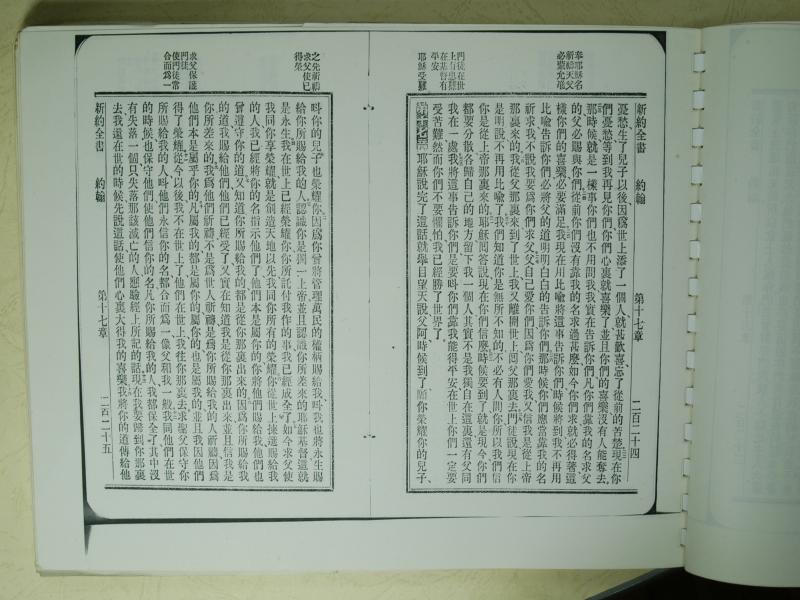 新約全書 約翰 第十七章 二百二十四
奉耶穌名
祈禱天父
必蒙允准
門徒在世
上有患難
在基督有
平安
耶穌受難
憂愁生了兒子以後因爲世上添了一個人就甚歡喜忘了從前的苦楚現在你
們憂愁等到我再見你們你們心裏就喜樂了並且你們的喜樂沒有人能奪去
那時候就是一樣事你們也不用問我我實在告訴你們凡你們靠我的名求父
的父必賜與你們從前你們沒有靠我的名求過甚麼如今你們求就必得著這
樣你們的喜樂必要滿足我現在用比喻將這事告訴你們時候將到我不再用
比喻告訴你們必將父的道明明白白的告訴你們那時候你們應當靠我的名
祈求我不說我要爲你們求父父自己愛你們因爲你們愛我又信我是從上帝
那裏來的我從父那裏來到了世上我又離開世上囘父那裏去門徒說現在你
是明說不再用比喻了我們知道你是無所不知的不必有人問你所以我們信
你是從上帝那裏來的耶穌囘答說現在你們信麼時候要到了就是現今你們
都要分散各歸自己的地方留下我一個人其實不是我獨自在這裏還有父同
我在一處我將這事告訴你們是要呌你們靠我能得平安在世上你們一定要
受苦難然而你們不要懼怕我已經勝了世界了
耶穌說完了這話就舉目望天說父阿時候到了願你榮耀你的兒子
之先祈禱
求父使己
得榮
求父保護
門徒
使門徒常
合而爲一
呌你的兒子也榮耀你因爲你曾將管理萬民的權柄賜給我呌我也將永生賜
給你所賜給我的人認識你是獨一上帝並且認識你所差來的耶穌基督這就
是永生我在世上已經榮耀你你所託付我作的事我已經成全了如今求父使
我同你享榮耀就是創造天地以先我同你所有的榮耀你從世上揀選賜給我
的人我已經將你的名指示他們了他們本是屬你的你將他們賜給我他們也
曾遵守你的道又知道你所賜給我的都是從你那裏出來的因爲你所賜給我
的道我賜給他們他們已經受了又實在知道我是從你那裏出來並且信我是
你所差來的我爲他們祈禱不是爲世人祈禱是爲你所賜給我的人祈禱因爲
他們本是屬乎你的凡屬我的都是屬你的屬你的也是屬我的並且我因他們
得了榮耀從今以後我不在世上了他們在世上我往你那裏去求聖父保守你
所賜給我的人呌他們永信你的名都合而爲一像父和我一般我同他們在世
的時候也保守他們使他們信你的名凡你所賜給我的人我都保全了其中沒
有失落一個只失落那該滅亡的人應驗經上所記的話現在我要歸到你那裏
去我還在世的時候先說這話使他們心裏大得我的喜樂我將你的道傳給他
新約全書 約翰 第十七章 二百二十五